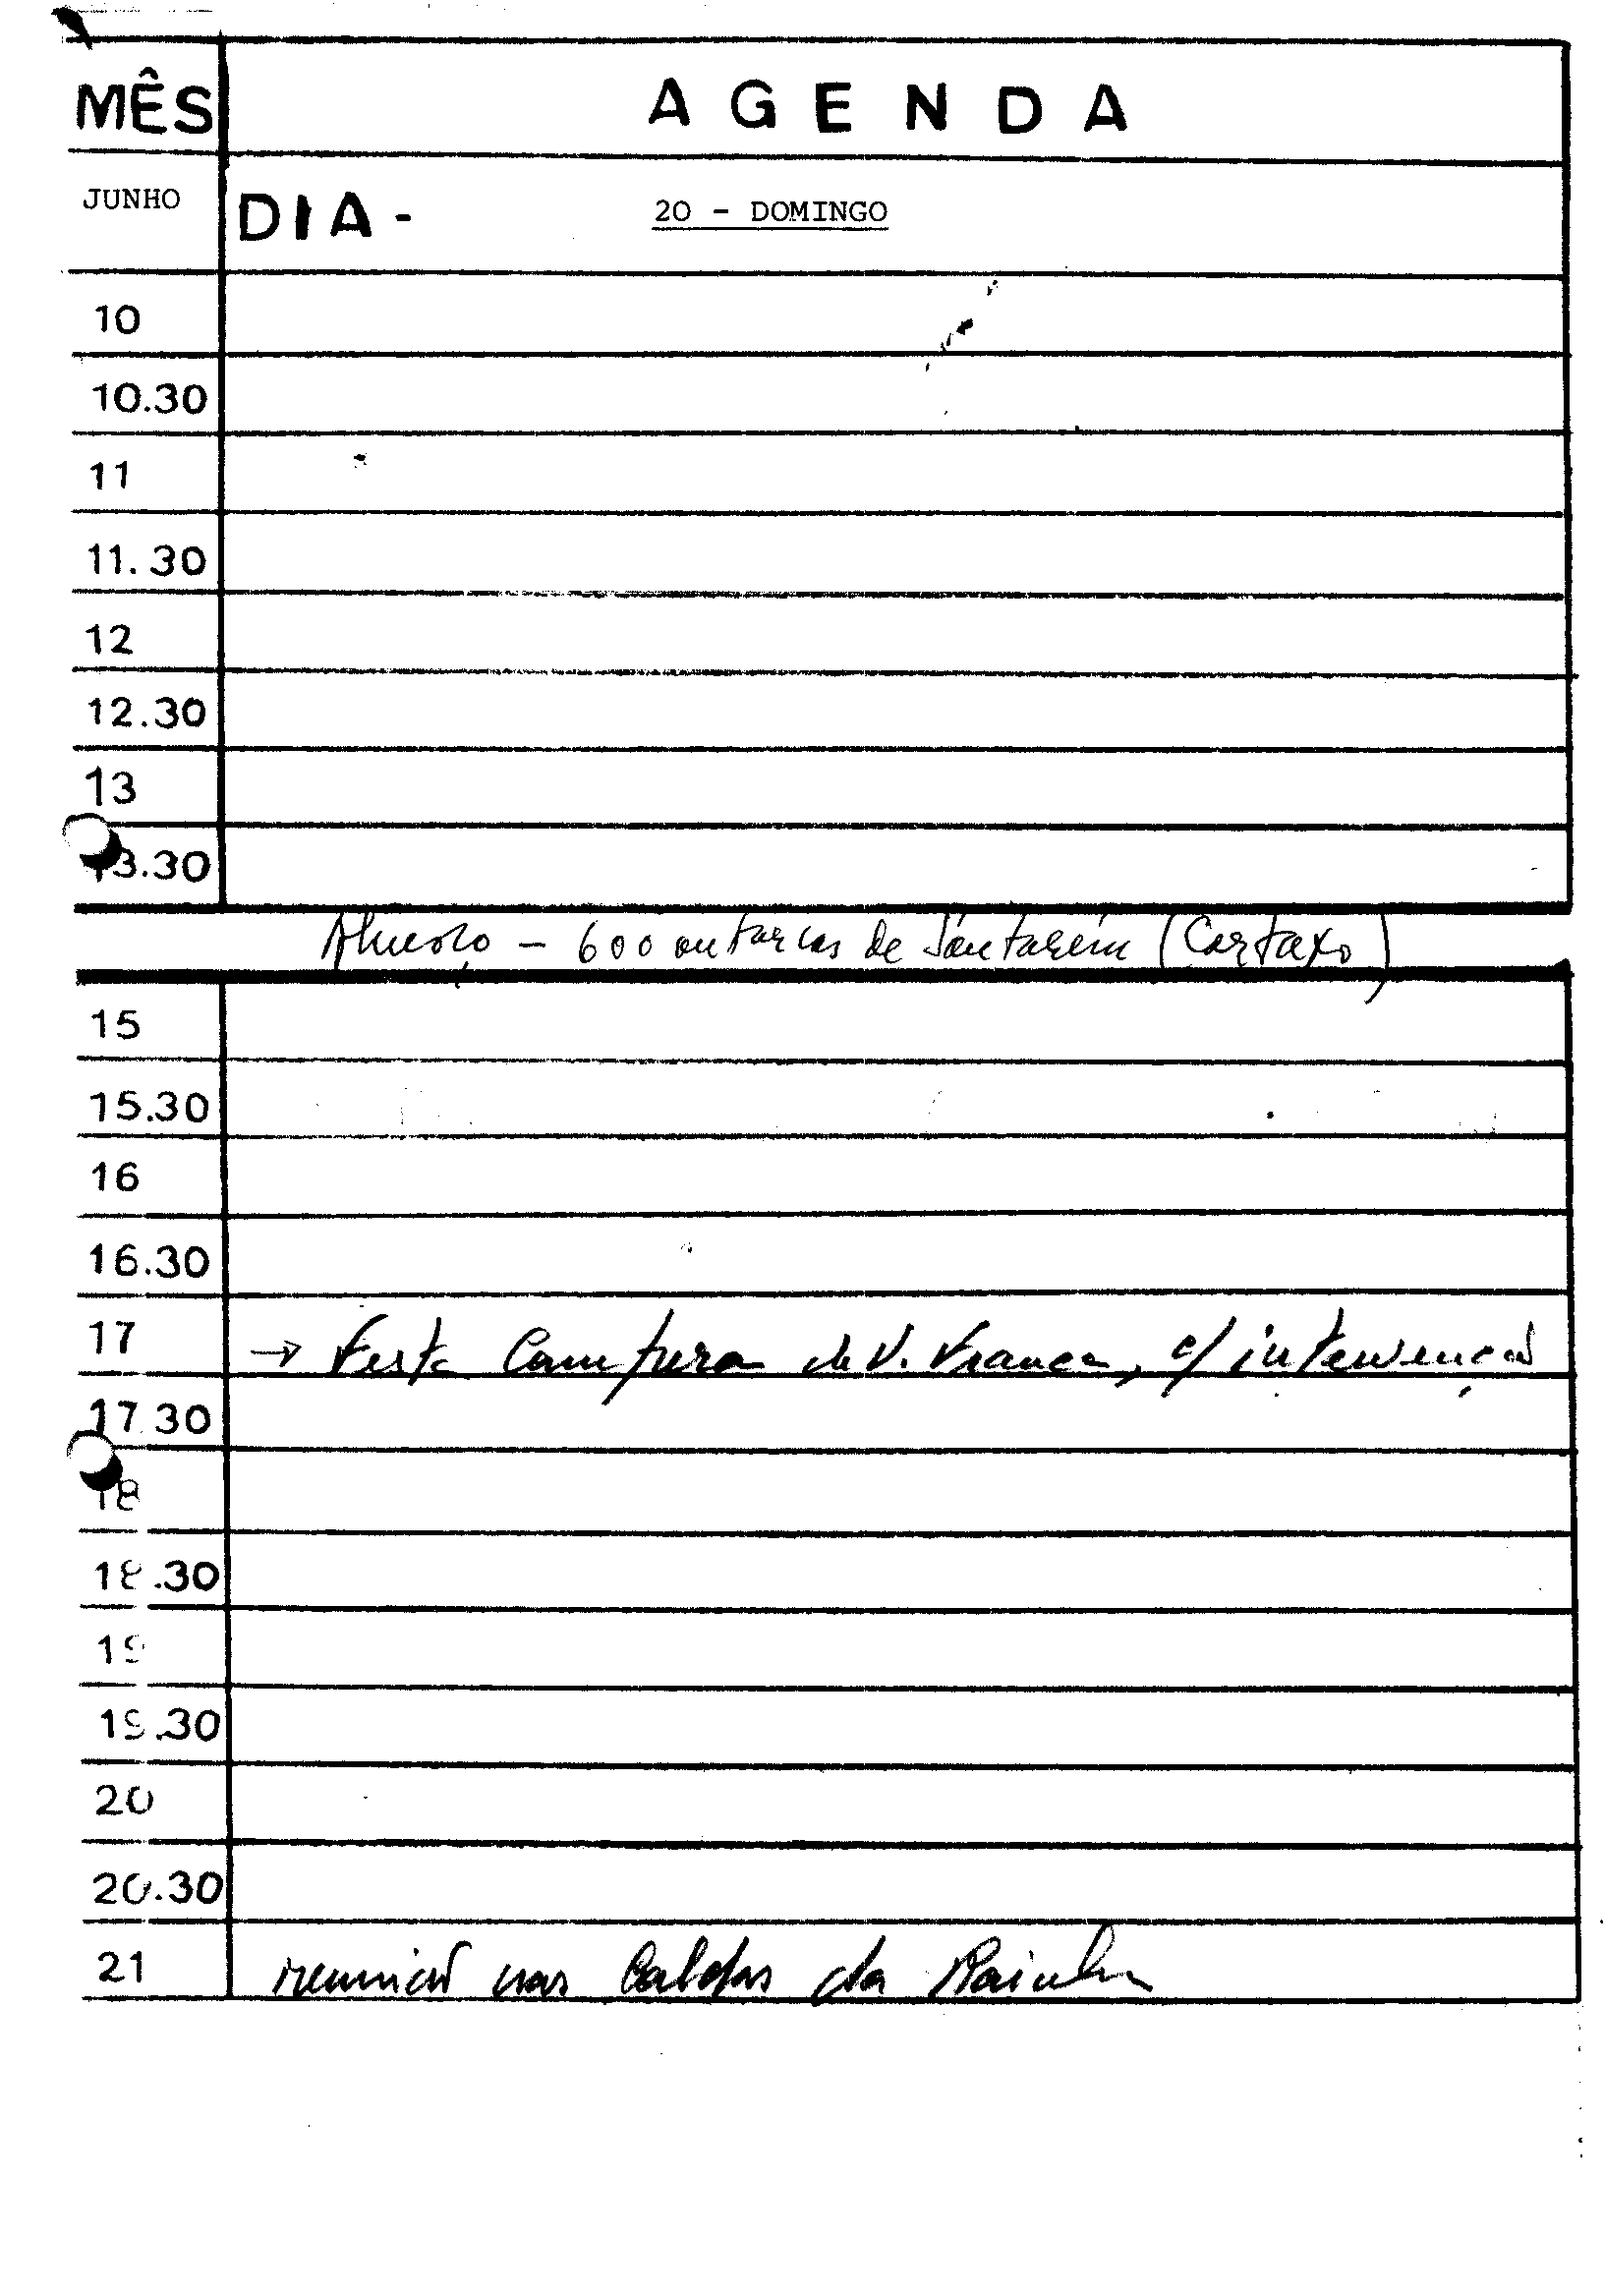 MÊS AGENDA
JUNHO DIA - 20 - DOMINGO
10
10.30
11
11.30
12
12.30
13
13.30
Almoço - 600 autarcas de Santarém (Cartaxo)
15
15.30
16
16.30
17 → Festa Campera de V. Franca, c/ intervenção
17.30
18
18.30
19
19.30
20
20.30
21 reunião nas Caldas da Rainha